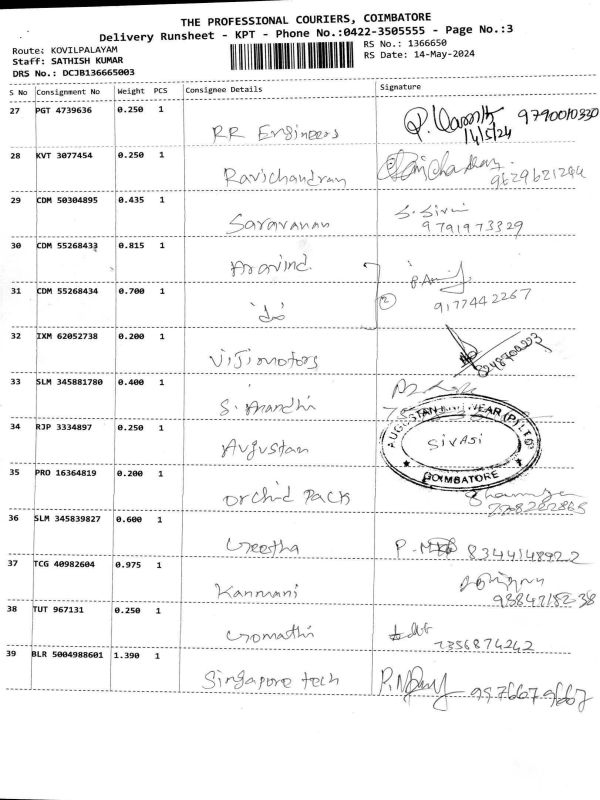 THE PROFESSIONAL COURIERS, COIMBATORE
Delivery Runsheet - KPT - Phone No.:0422-3505555 - Page No.:3
Route: KOVILPALAYAM
RS No.: 1366650
Staff: SATHISH KUMAR
RS Date: 14-May-2024
DRS No.: DCJB136665003
S No Consignment No Weight PCS Consignee Details Signature
27 PGT 4739636 0.250 1 RR Engineers 14/5/24 9790010330
28 KVT 3077454 0.250 1 Ravichandran 9629621244
29 CDM 50304895 0.435 1 Saravanan 9791973329
30 CDM 55268433 0.815 1 Aravind
31 CDM 55268434 0.700 1 do 2 9177442267
32 IXM 62052738 0.200 1 Vijimotors 8248700223
33 SLM 345881780 0.400 1 S. Anandhi
34 RJP 3334897 0.250 1 Augustan AUGUSTAN KNITWEAR (P) LTD SIVASI COIMBATORE
35 PRO 16364819 0.200 1 Orchid Pack
36 SLM 345839827 0.600 1 Geetha 8344148922
37 TCG 40982604 0.975 1 Kanmani
38 TUT 967131 0.250 1 Gomathi 7356874242
39 BLR 5004988601 1.390 1 Singapore tech 9976679667